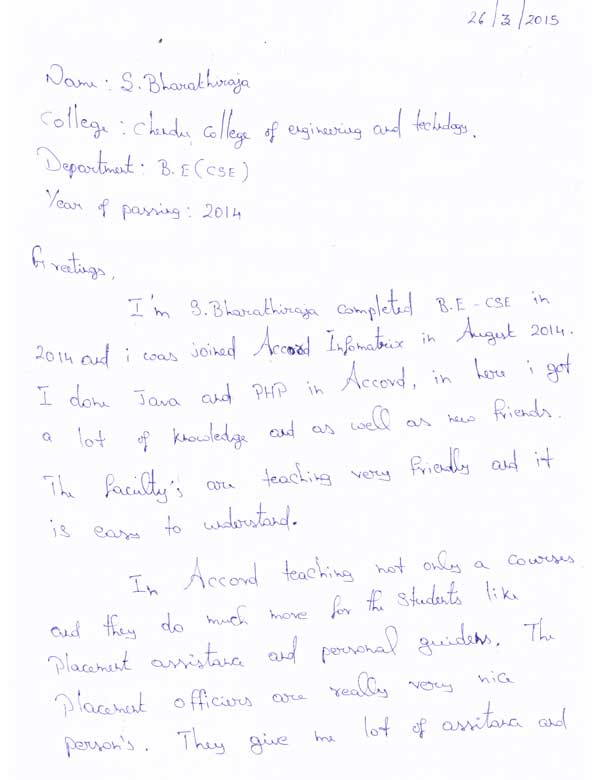 26/3/2015
Name : S. Bharathiraja
College : Chendu College of engineering and technology.
Department : B.E (CSE)
Year of passing : 2014
Greetings,
I'm S.Bharathiraja completed B.E - CSE in
2014 and i was joined Accord Infomatrix in August 2014.
I done Java and PHP in Accord, in here i got
a lot of knowledge and as well as new friends.
The faculty's are teaching very friendly and it
is easy to understand.
In Accord teaching not only a courses
and they do much more for the students like
Placement assistance and personal guiders. The
Placement officiers are really very nice
person's. They give me lot of assitance and